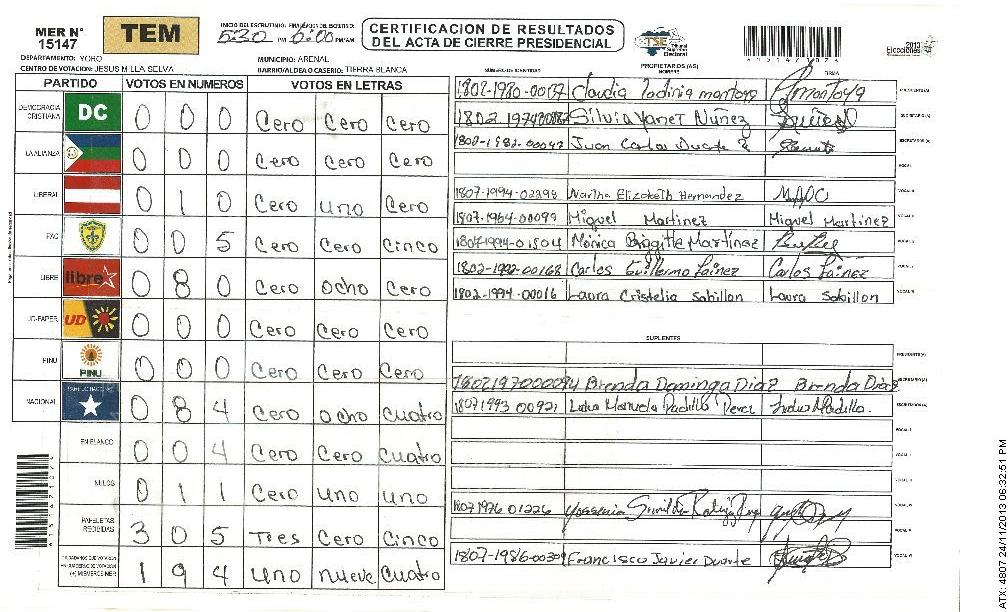 MER N° 15147
TEM
INICIO DEL ESCRUTINIO: FINALIZACION DEL ESCRUTINIO:
5:30 PM 6:00 PM/AM
CERTIFICACION DE RESULTADOS
DEL ACTA DE CIERRE PRESIDENCIAL
TSE Tribunal Supremo Electoral
2013 Elecciones
DEPARTAMENTO: YORO
MUNICIPIO: ARENAL
CENTRO DE VOTACION: JESUS MILLA SELVA
BARRIO/ALDEA O CASERIO: TIERRA BLANCA
PARTIDO VOTOS EN NUMEROS VOTOS EN LETRAS
DEMOCRACIA CRISTIANA DC 0 0 0 Cero Cero Cero
LA ALIANZA 0 0 0 Cero Cero Cero
LIBERAL 0 1 0 Cero uno Cero
FAC 0 0 5 Cero Cero Cinco
LIBRE libre 0 8 0 Cero ocho Cero
UD-FAPER UD 0 0 0 Cero Cero Cero
PINU PINU 0 0 0 Cero Cero Cero
NACIONAL 0 8 4 Cero ocho Cuatro
EN BLANCO 0 0 4 Cero Cero Cuatro
NULOS 0 1 1 Cero uno uno
PAPELETAS RECIBIDAS 3 0 5 Tres Cero Cinco
CIUDADANOS QUE VOTARON EN CUADERNO DE VOTACION (+) MIEMBROS MER 1 9 4 uno nueve Cuatro
NUMERO DE IDENTIDAD PROPIETARIOS (AS) NOMBRE FIRMA
Claudia montoya PRESIDENTE(A)
Silvia Yanet Nuñez SECRETARIO(A)
Juan Carlos Duarte
VOCAL I
1807-1994-02898 Martha Elizabeth Hernandez
1807-1964-00099 Miguel Martinez Miguel Martinez
1807-1994-01504 Monica Briggitte Martínez
1802-1992-00168 Carlos Guillermo Laínez Carlos Laínez
1802-1994-00016 Laura Cristelia Sabillon Laura Sabillon
SUPLENTES
PRESIDENTE(A)
1802197000094 Brenda Dominga Diaz Brenda Diaz SECRETARIO(A)
1807 1993 00921 Manuela Padilla Perez
1807 1976 01226
1807-1986-00309 Francisco Javier Duarte
ATX: 4807 24/11/2013 06:32:51 PM